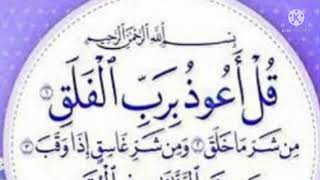 بِسْمِ ٱللَّهِ ٱلرَّحْمَٰنِ ٱلرَّحِيمِ
قُلْ أَعُوذُ بِرَبِّ ٱلْفَلَقِ ١
مِن شَرِّ مَا خَلَقَ ٢ وَمِن شَرِّ غَاسِقٍ إِذَا وَقَبَ ٣